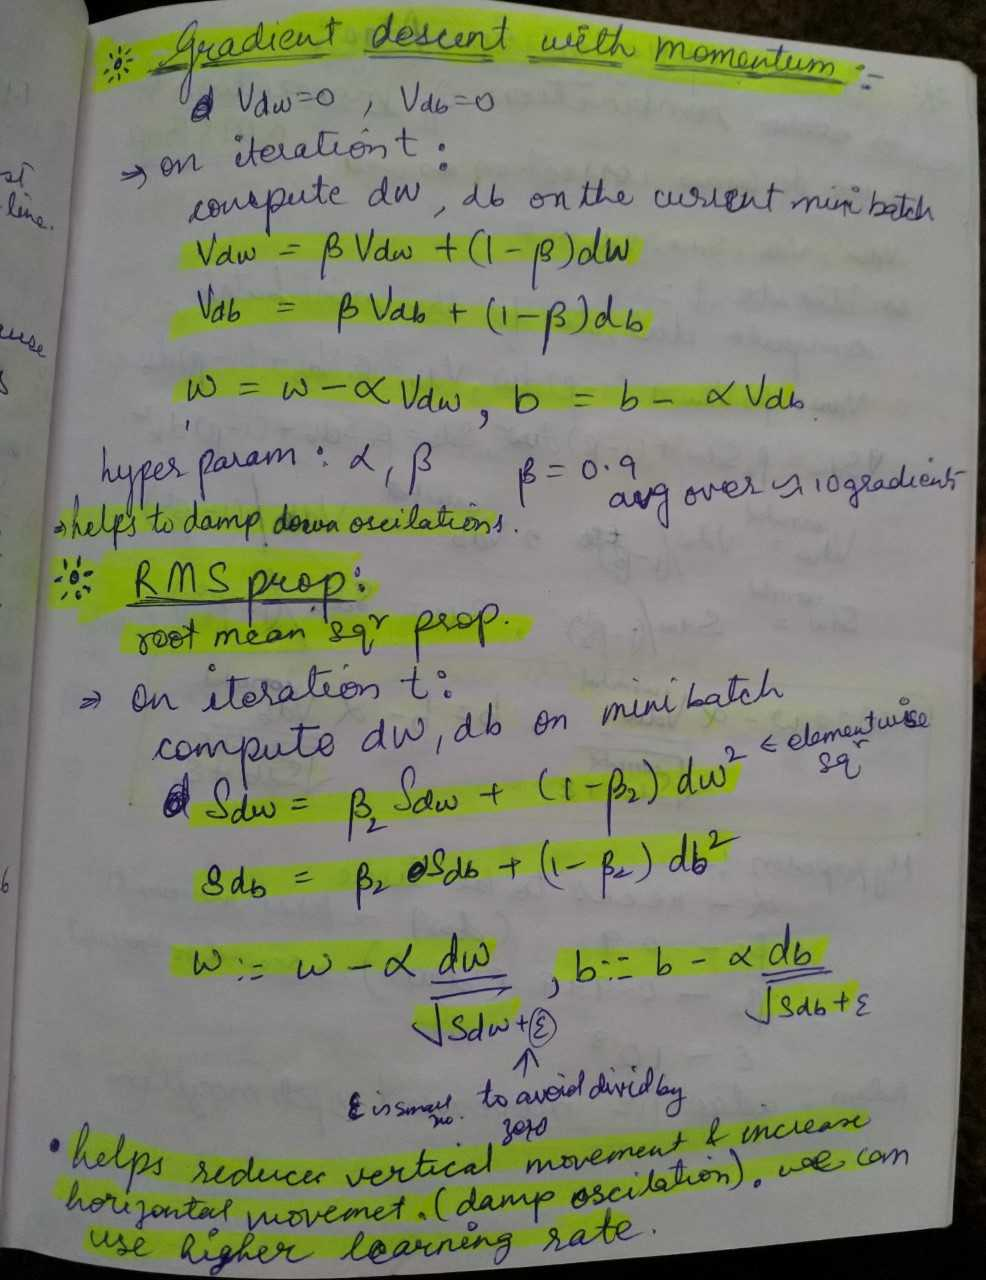 Gradient descent with momentum :-
Vdw=0 , Vdb=0
⇒ on iteration t :
compute dw, db on the current mini batch
Vdw = β Vdw + (1-β)dw
Vdb = β Vdb + (1-β)db
w = w - α Vdw, b = b - α Vdb.
hyper param : α, β β = 0.9
avg over ~ 10 gradients
⇒ helps to damp down oscilations.
RMS prop:
root mean sqr prop.
⇒ On iteration t:
compute dw, db on mini batch
Sdw = β₂ Sdw + (1-β₂) dw² ← elementwise
sqr
Sdb = β₂ Sdb + (1-β₂) db²
w := w - α dw/√Sdw+ε , b := b - α db/√Sdb+ε
↑
ε is small no. to avoid divid by
zero
• helps reduces vertical movement & increase
horizontal movemet. (damp oscilation). we can
use higher learning rate.
st
line.
ause
s
6